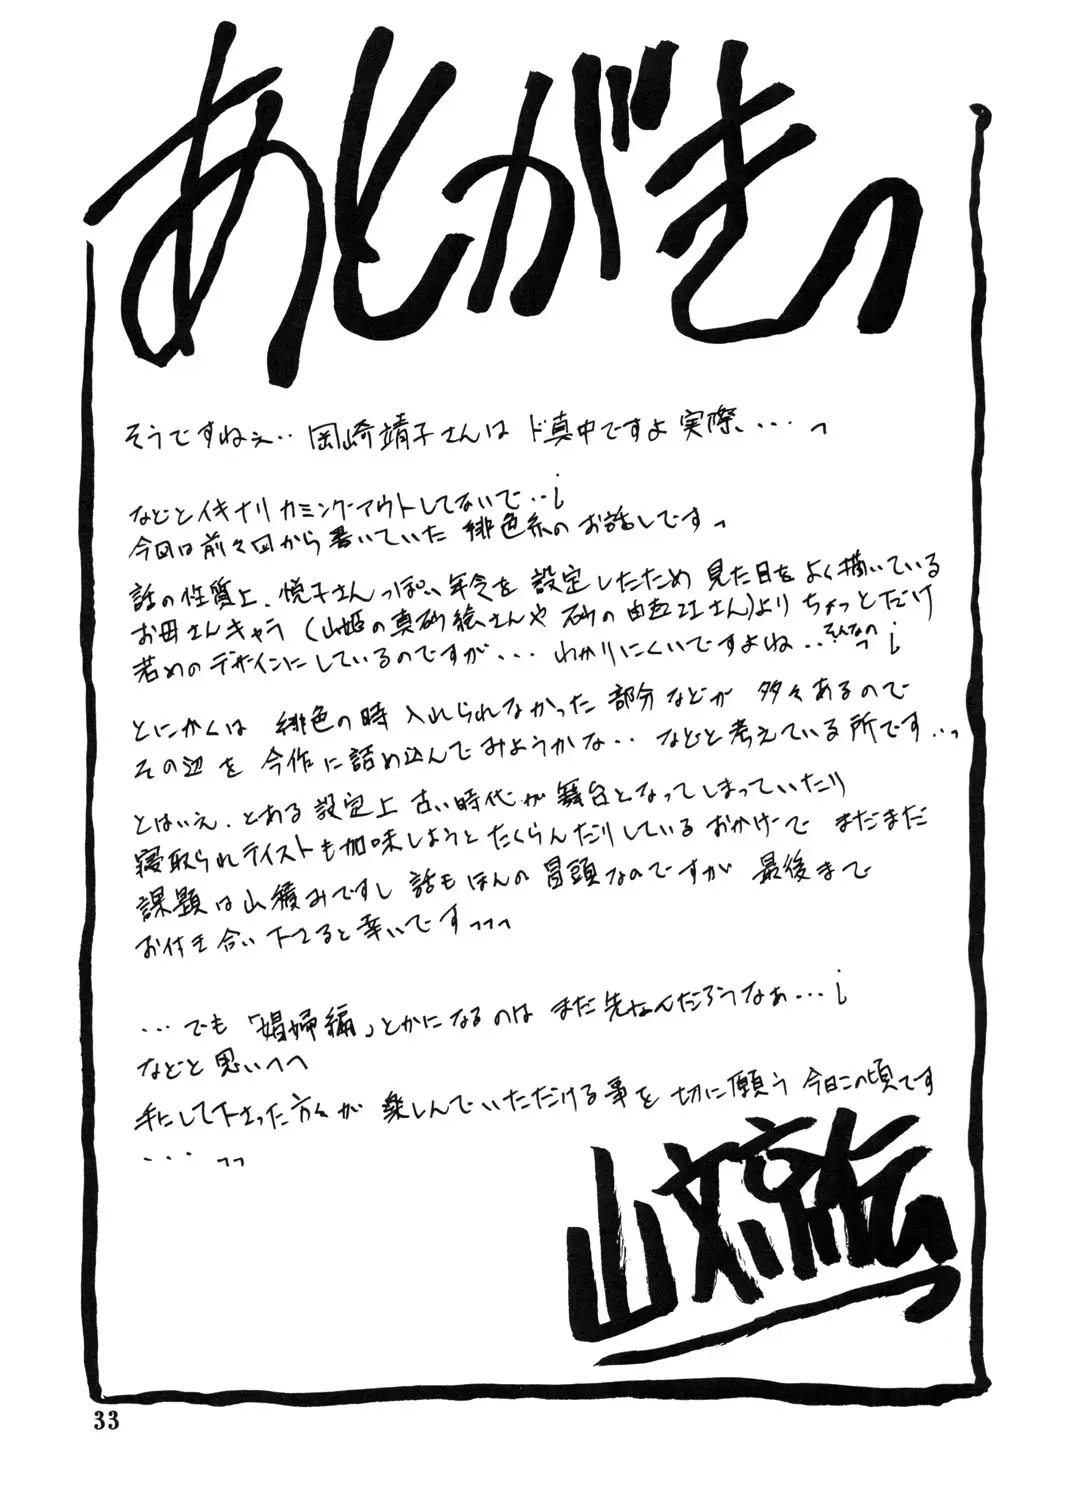 あとがきっ
そうですねぇ‥ 岡崎靖子さんは ド真中ですよ実際、‥‥っ
などとイキナリ カミングアウトしてないで‥¡
今回は前々回から書いていた 緋色系のお話しですっ
話の性質上、悦子さんっぽい年令を 設定したため 見た目をよく描いている
お母さんキャラ (山姫の真砂絵さんや 砂の由エさん)より ちょっとだけ
若めのデザインにしているのですが‥‥ わかりにくいですよね‥そんなのっ¡
とにかくは 緋色の時 入れられなかった 部分などが 多々あるので
その辺を 今作に詰め込んでみようかな‥ などと考えている所です‥っ
とはいえ、とある設定上 古い時代が舞台となってしまっていたり
寝取られテイストも加味しようと たくらんだりしているおかげで まだまだ
課題は山積みですし 話もほんの冒頭なのですが 最後まで
お付き合い下さると幸いですっっっ
‥‥でも「娼婦編」とかになるのは まだ先なんだろうなぁ‥‥¡
などと思いつつ
手にして下さった方々が 楽しんでいただける事を 切に願う 今日この頃です
‥‥っっ
山文京伝
33